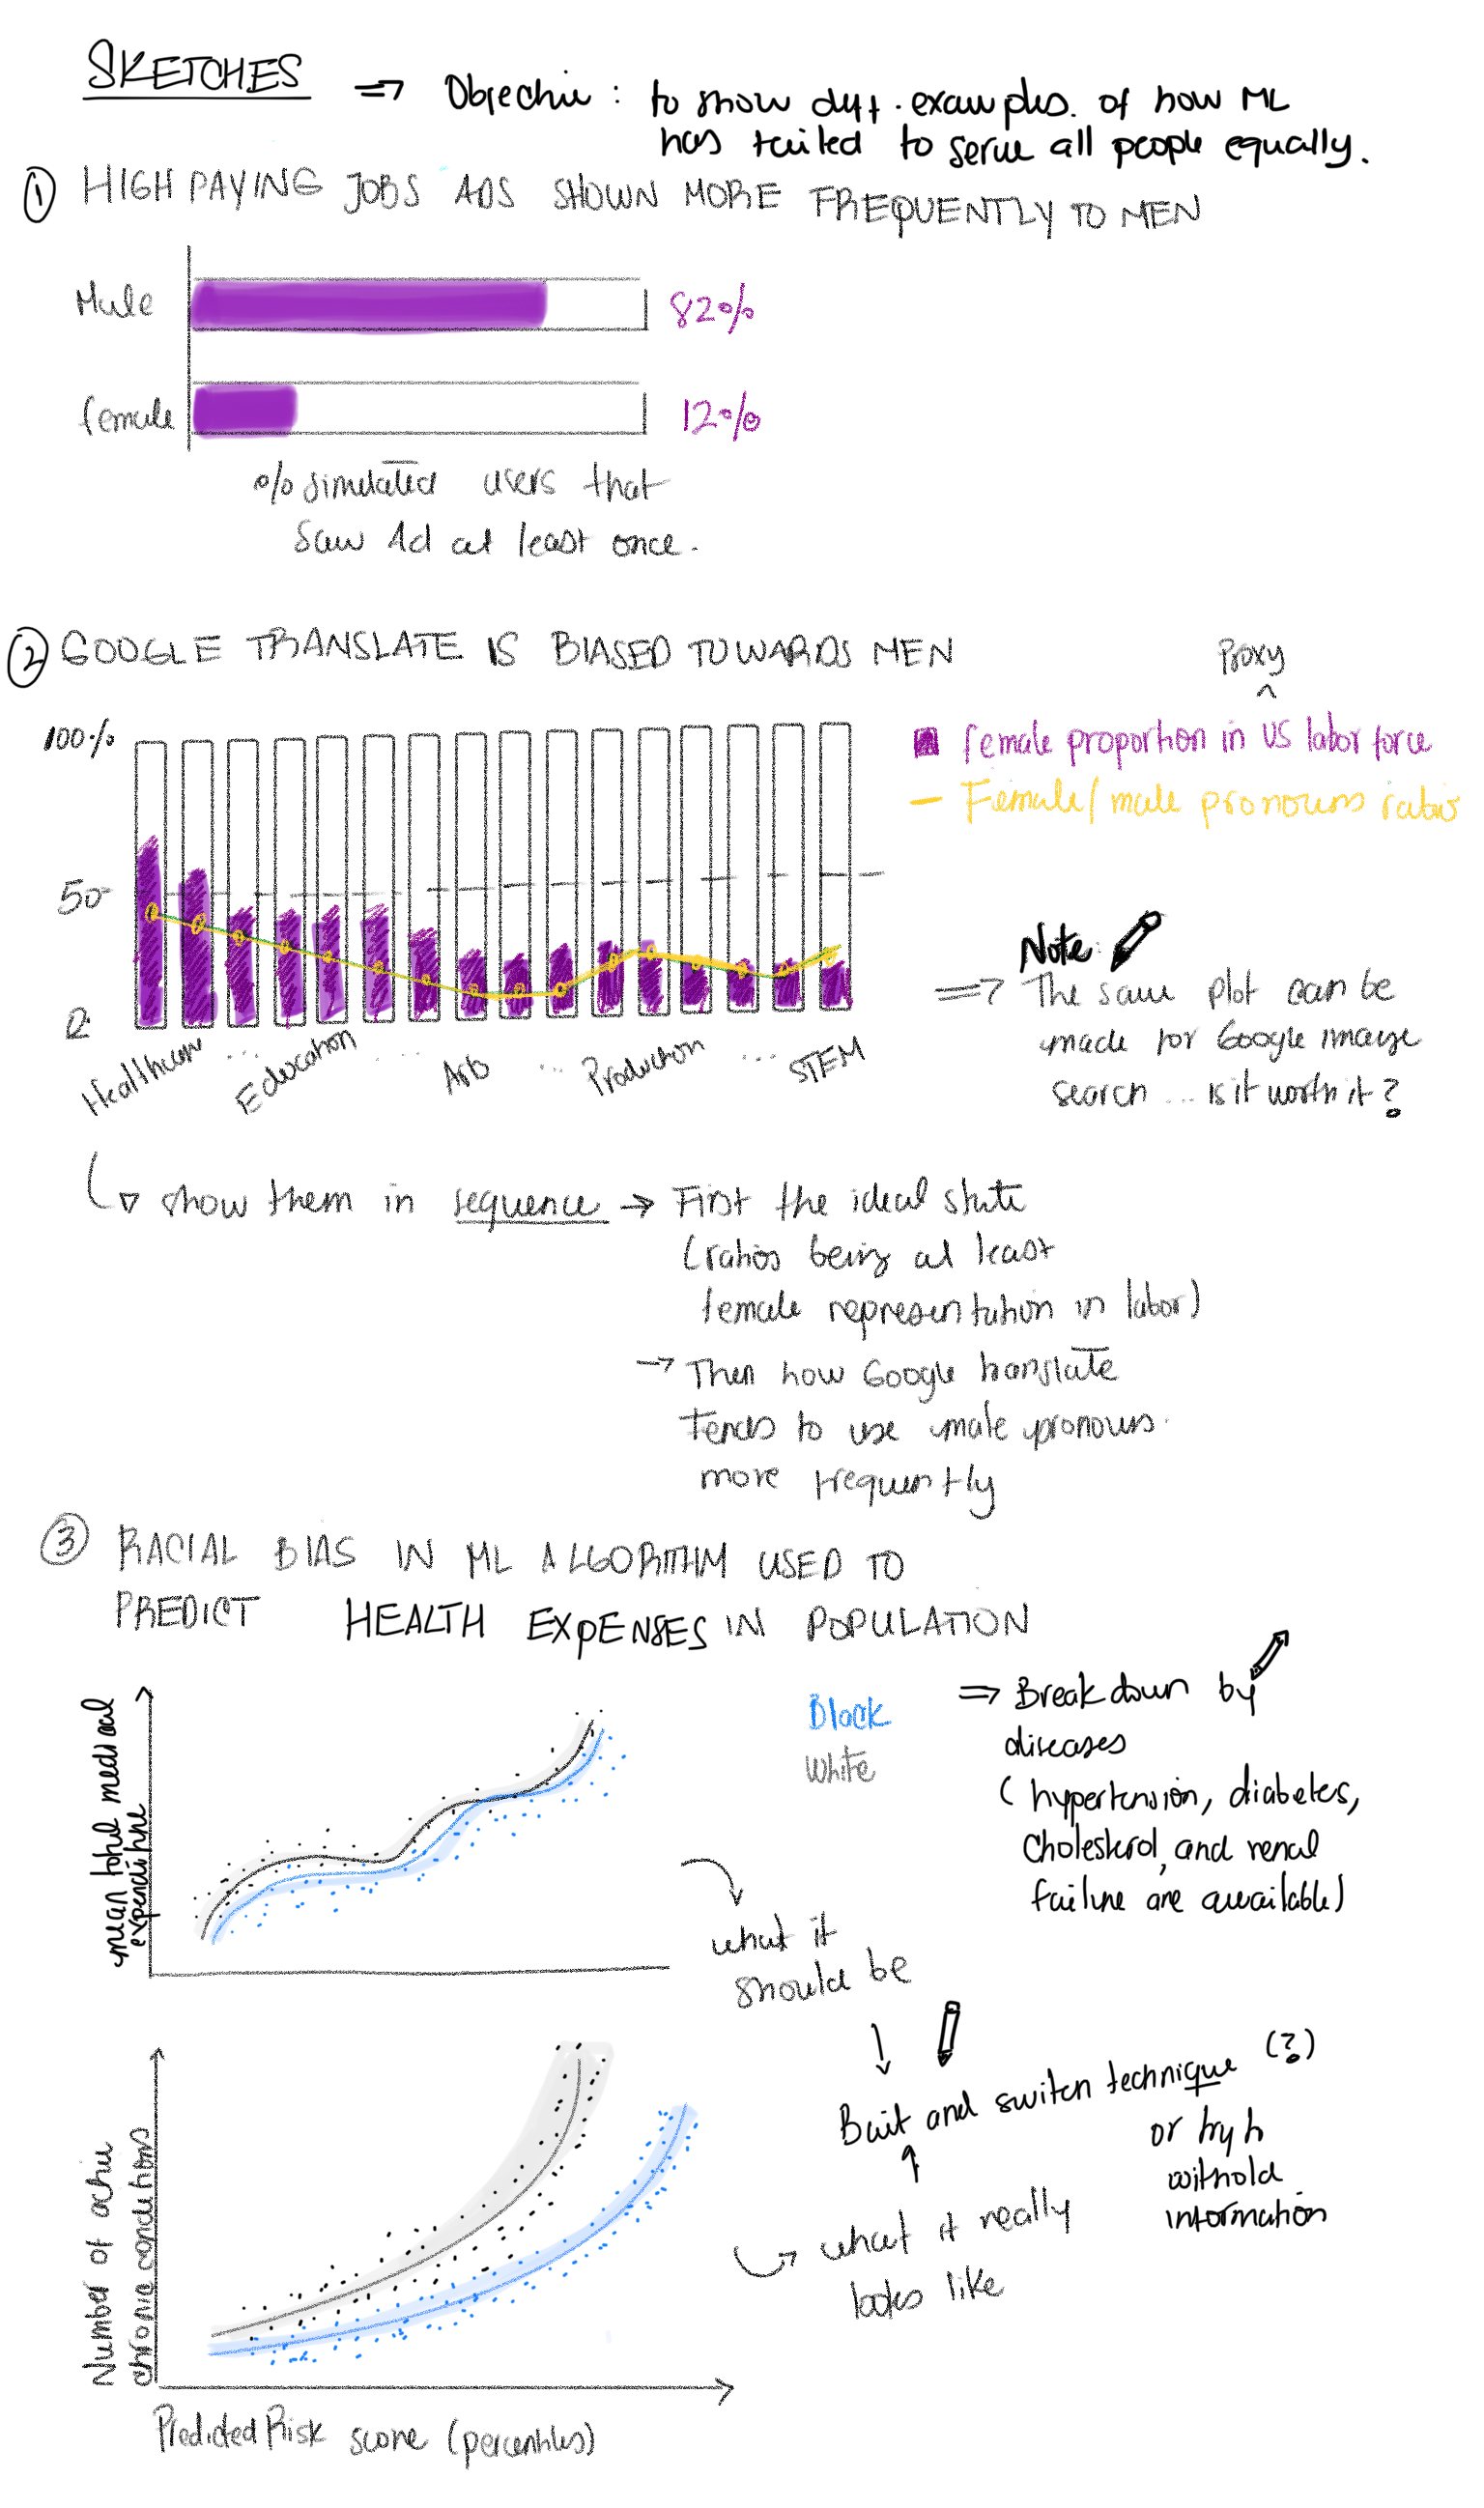 SKETCHES
=> Objective : to show diff. examples. of how ML
has failed to serve all people equally.
① HIGH PAYING JOBS ADS SHOWN MORE FREQUENTLY TO MEN
Male
82%
female
12%
% simulated users that
saw Ad at least once.
② GOOGLE TRANSLATE IS BIASED TOWARDS MEN
Proxy
^
100%
female proportion in US labor force
Female/male pronouns ratio
50
0
Healthcare ... Education ... Arts ... Production ... STEM
Note:
=> The same plot can be
made for Google image
search ... is it worth it?
show them in sequence → First the ideal state
(ratios being at least
female representation in labor)
→ Then how Google translate
tends to use male pronouns
more frequently
③ RACIAL BIAS IN ML ALGORITHM USED TO
PREDICT HEALTH EXPENSES IN POPULATION
mean total medical
expenditure
Black
White
=> Breakdown by
diseases
(hypertension, diabetes,
cholesterol, and renal
failure are available)
what it
should be
Bait and switch technique (?)
or try to
withold
information
what it really
looks like
Number of active
chronic conditions
Predicted Risk score (percentiles)